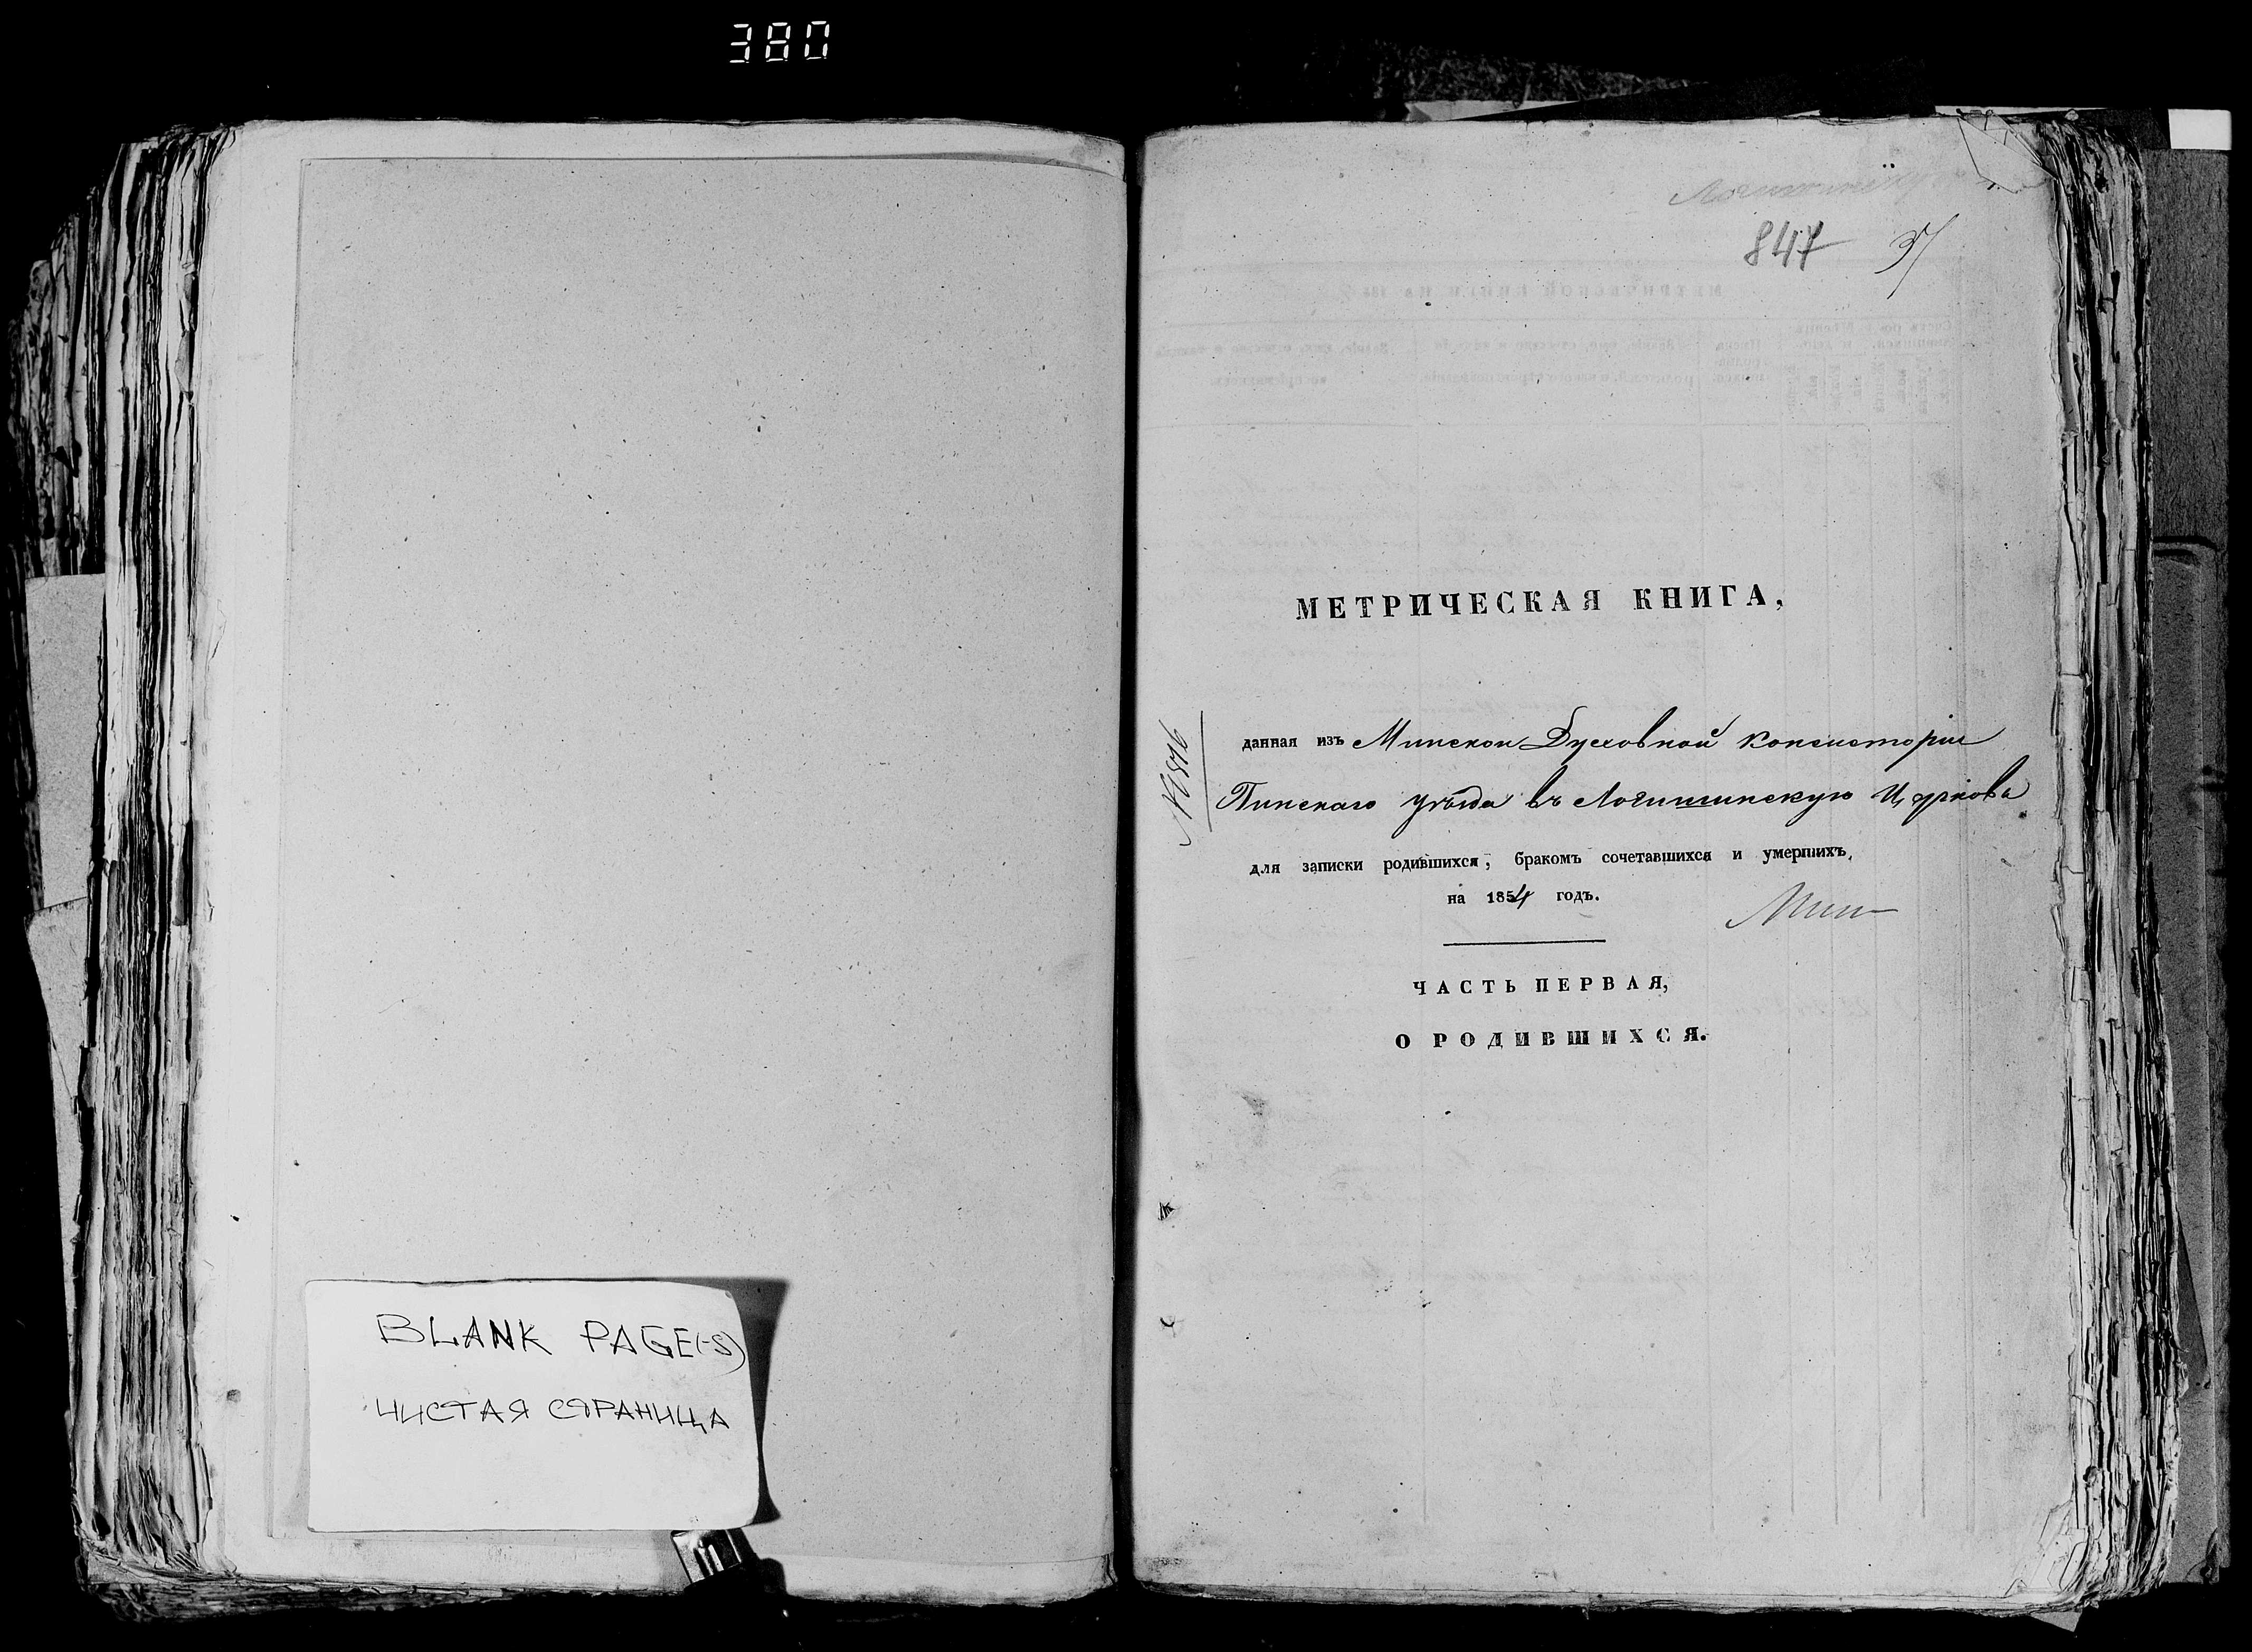 380
BLANK PAGE(-S)
ЧИСТАЯ СТРАНИЦА
847 37
МЕТРИЧЕСКАЯ КНИГА,
данная изъ Минской Духовной Консисторіи
Пинскаго уѣзда въ Логишинскую Церковь
для записки родившихся, бракомъ сочетавшихся и умершихъ,
на 1854 годъ.
ЧАСТЬ ПЕРВАЯ,
О РОДИВШИХСЯ.